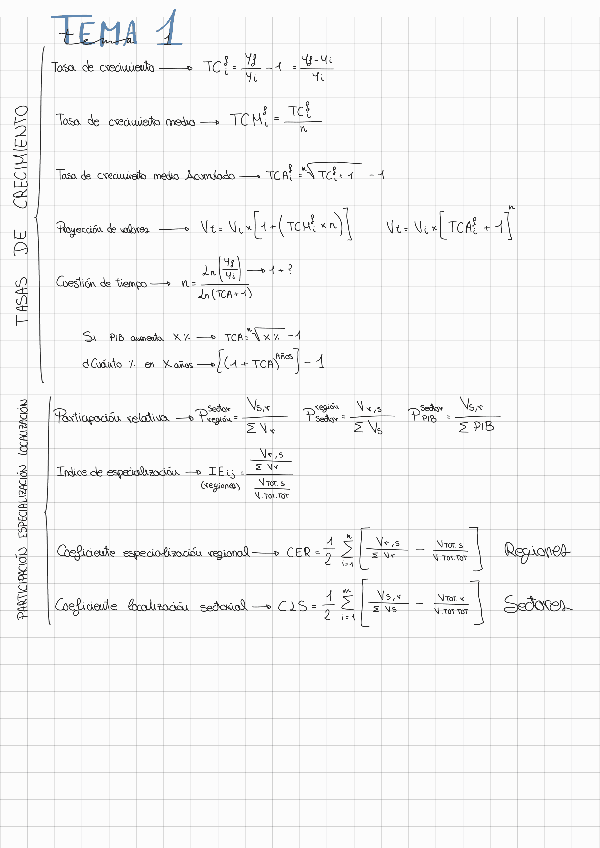 TEMA 1
tema 1
TASAS DE CRECIMIENTO
Tasa de crecimiento → TCᵢᶠ = Yf/Yi - 1 = (Yf-Yi)/Yi
Tasa de crecimiento medio → TCMᵢᶠ = TCᵢᶠ/n
Tasa de crecimiento medio Acumulado → TCAᵢᶠ = ⁿ√(TCᵢᶠ+1) - 1
Proyección de valores → Vt = Vi × [1 + (TCMᵢᶠ × n)] Vt = Vi × [TCAᵢᶠ + 1]ⁿ
Cuestión de tiempo → n = Ln(Yf/Yi) / Ln(TCA+1) → 1 + ?
Si PIB aumenta X % → TCA = ⁿ√(X %) - 1
¿Cuánto % en X años → [(1 + TCA)^Años] - 1
PARTICIPACIÓN ESPECIALIZACIÓN LOCALIZACIÓN
Participación relativa → P sector región = Vs,r / Σ Vr P región sector = Vr,s / Σ Vs P sector PIB = Vs,r / Σ PIB
Indice de especialización → IEij (regiones) = (Vr,s / Σ Vr) / (VTOT.S / V.TOT.TOT)
Coeficiente especialización regional → CER = 1/2 Σ i=1 n [Vr,s / Σ Vr - VTOT.S / V.TOT.TOT] Regiones
Coeficiente localización sectorial → CLS = 1/2 Σ i=1 m [Vs,r / Σ Vs - VTOT.r / V.TOT.TOT] Sectores